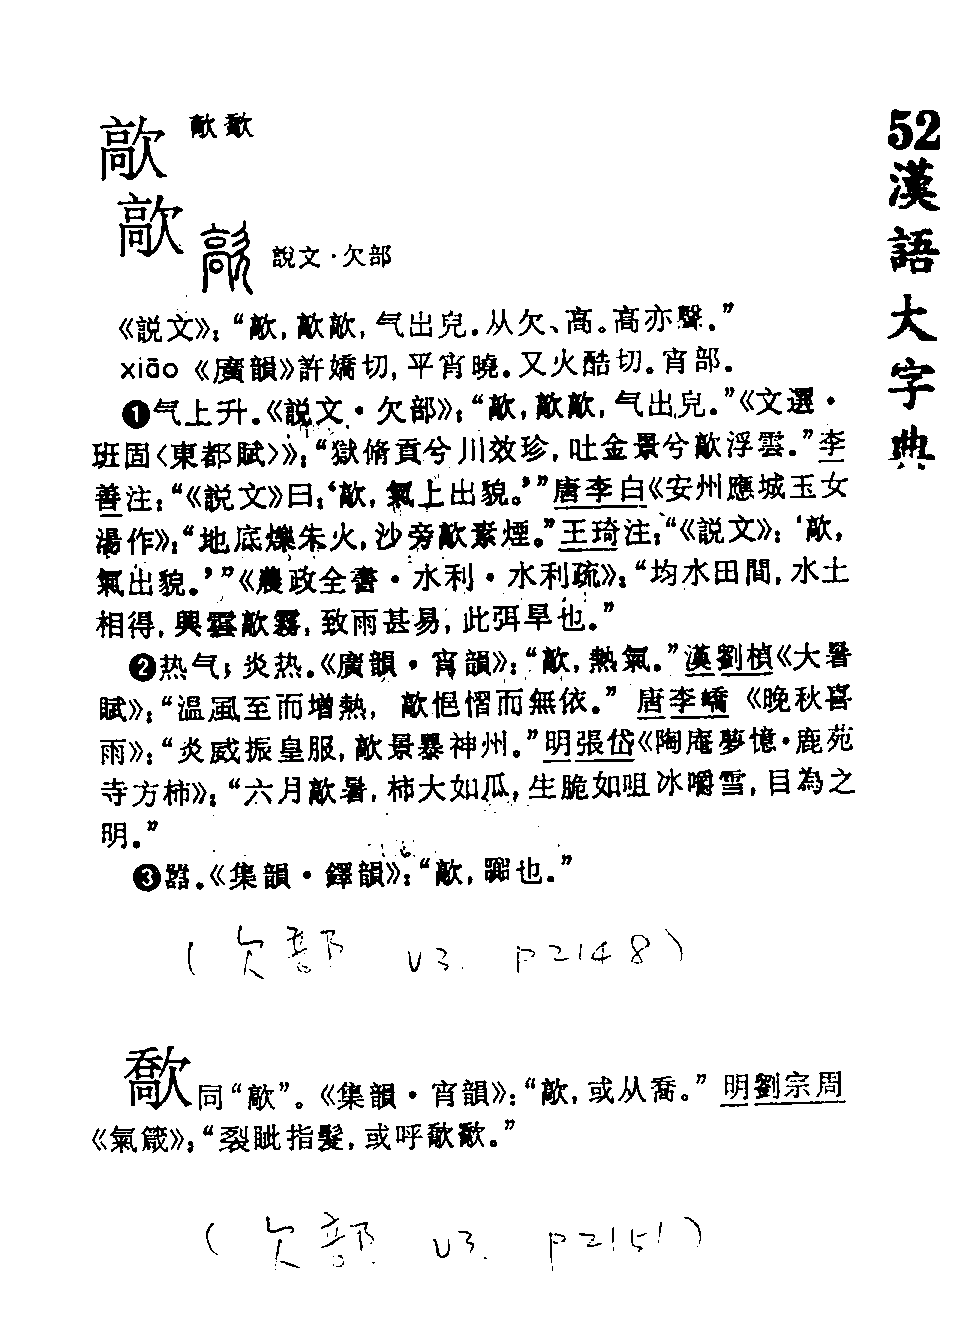 歊 歊歊
歊
説文·欠部
《説文》：“歊，歊歊，气出皃。从欠、高。高亦聲。”
xiāo 《廣韻》許嬌切，平宵曉。又火酷切。宵部。
❶气上升。《説文·欠部》：“歊，歊歊，气出皃。”《文選·
班固〈東都賦〉》：“嶽脩貢兮川效珍，吐金景兮歊浮雲。”李
善注：“《説文》曰：‘歊，氣上出貌。’”唐李白《安州應城玉女
湯作》：“地底爍朱火，沙旁歊素煙。”王琦注：“《説文》：‘歊，
氣出貌。’”《農政全書·水利·水利疏》：“均水田間，水土
相得，興雲歊霧，致雨甚易，此弭旱也。”
❷热气；炎热。《廣韻·宵韻》：“歊，熱氣。”漢劉楨《大暑
賦》：“温風至而增熱，歊悒慴而無依。” 唐李嶠《晚秋喜
雨》：“炎威振皇服，歊景暴神州。”明張岱《陶庵夢憶·鹿苑
寺方柿》：“六月歊暑，柿大如瓜，生脆如咀冰嚼雪，目為之
明。”
❸嚣。《集韻·鐸韻》：“歊，嚻也。”
（欠部 V3. P2148）
歊同“歊”。《集韻·宵韻》：“歊，或从喬。” 明劉宗周
《氣箴》：“裂眦指髮，或呼歊歊。”
（欠部 V3. P2151）
52漢語大字典